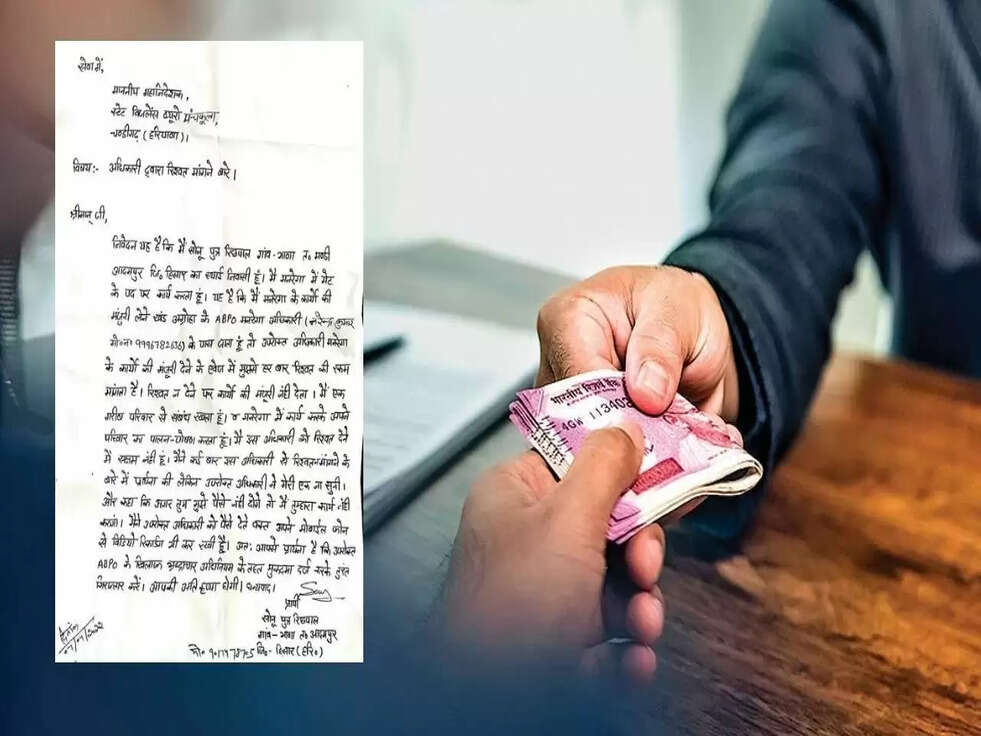 सेवा में,
माननीय महानिदेशक,
स्टेट विजिलेंस ब्यूरो पंचकूला,
चण्डीगढ़ (हरियाणा)।
विषय:- अधिकारी द्वारा रिश्वत मांगने बारे।
श्रीमान् जी,
निवेदन यह है कि मैं सोनू पुत्र रिछपाल गांव- त० मण्डी
आदमपुर जि० हिसार का स्थाई निवासी हूं। मैं मनरेगा में मेट
के पद पर कार्य करता हूं। यह है कि मैं मनरेगा के कार्यो की
मंजुरी लेने खंड अग्रोहा के ABPO मनरेगा अधिकारी (
मो०न०) के पास जाता हूं तो उपरोक्त अधिकारी मनरेगा
के कार्यो की मंजुरी देने के ऐवज में मुझसे हर बार रिश्वत की रकम
मांगता है। रिश्वत न देने पर कार्यो की मंजुरी नंही देता। मैं एक
गरीब परिवार से संबंध रखता हूं। व मनरेगा में कार्य करके अपने
परिवार का पालन-पोषण करता हूं। मैं इस अधिकारी को रिश्वत देने
में सक्षम नंही हूं। मैंने कई बार इस अधिकारी से रिश्वत न मांगने के
बारे में प्रार्थना की लेकिन उपरोक्त अधिकारी ने मेरी एक ना सुनी।
और कहा कि अगर तुम मुझे पैसे नंही दोगे तो मैं तुम्हारा कार्य नंही
करूंगा। मैंने उपरोक्त अधिकारी को पैसे देते वक्त अपने मोबाईल फोन
से विडियो रिकार्डिंग भी कर रखी है। अत: आपसे प्रार्थना है कि उपरोक्त
ABPO के खिलाफ भ्रष्टाचार अधिनियम के तहत मुकदमा दर्ज करके तुरंत
गिरफ्तार करें। आपकी अति कृपा होगी। धन्यवाद।
प्रार्थी
सोनू पुत्र रिछपाल
गांव- त० आदमपुर
मो० जि०- हिसार (हरि०)
दिनांक
भारतीय रिज़र्व बैंक
113402